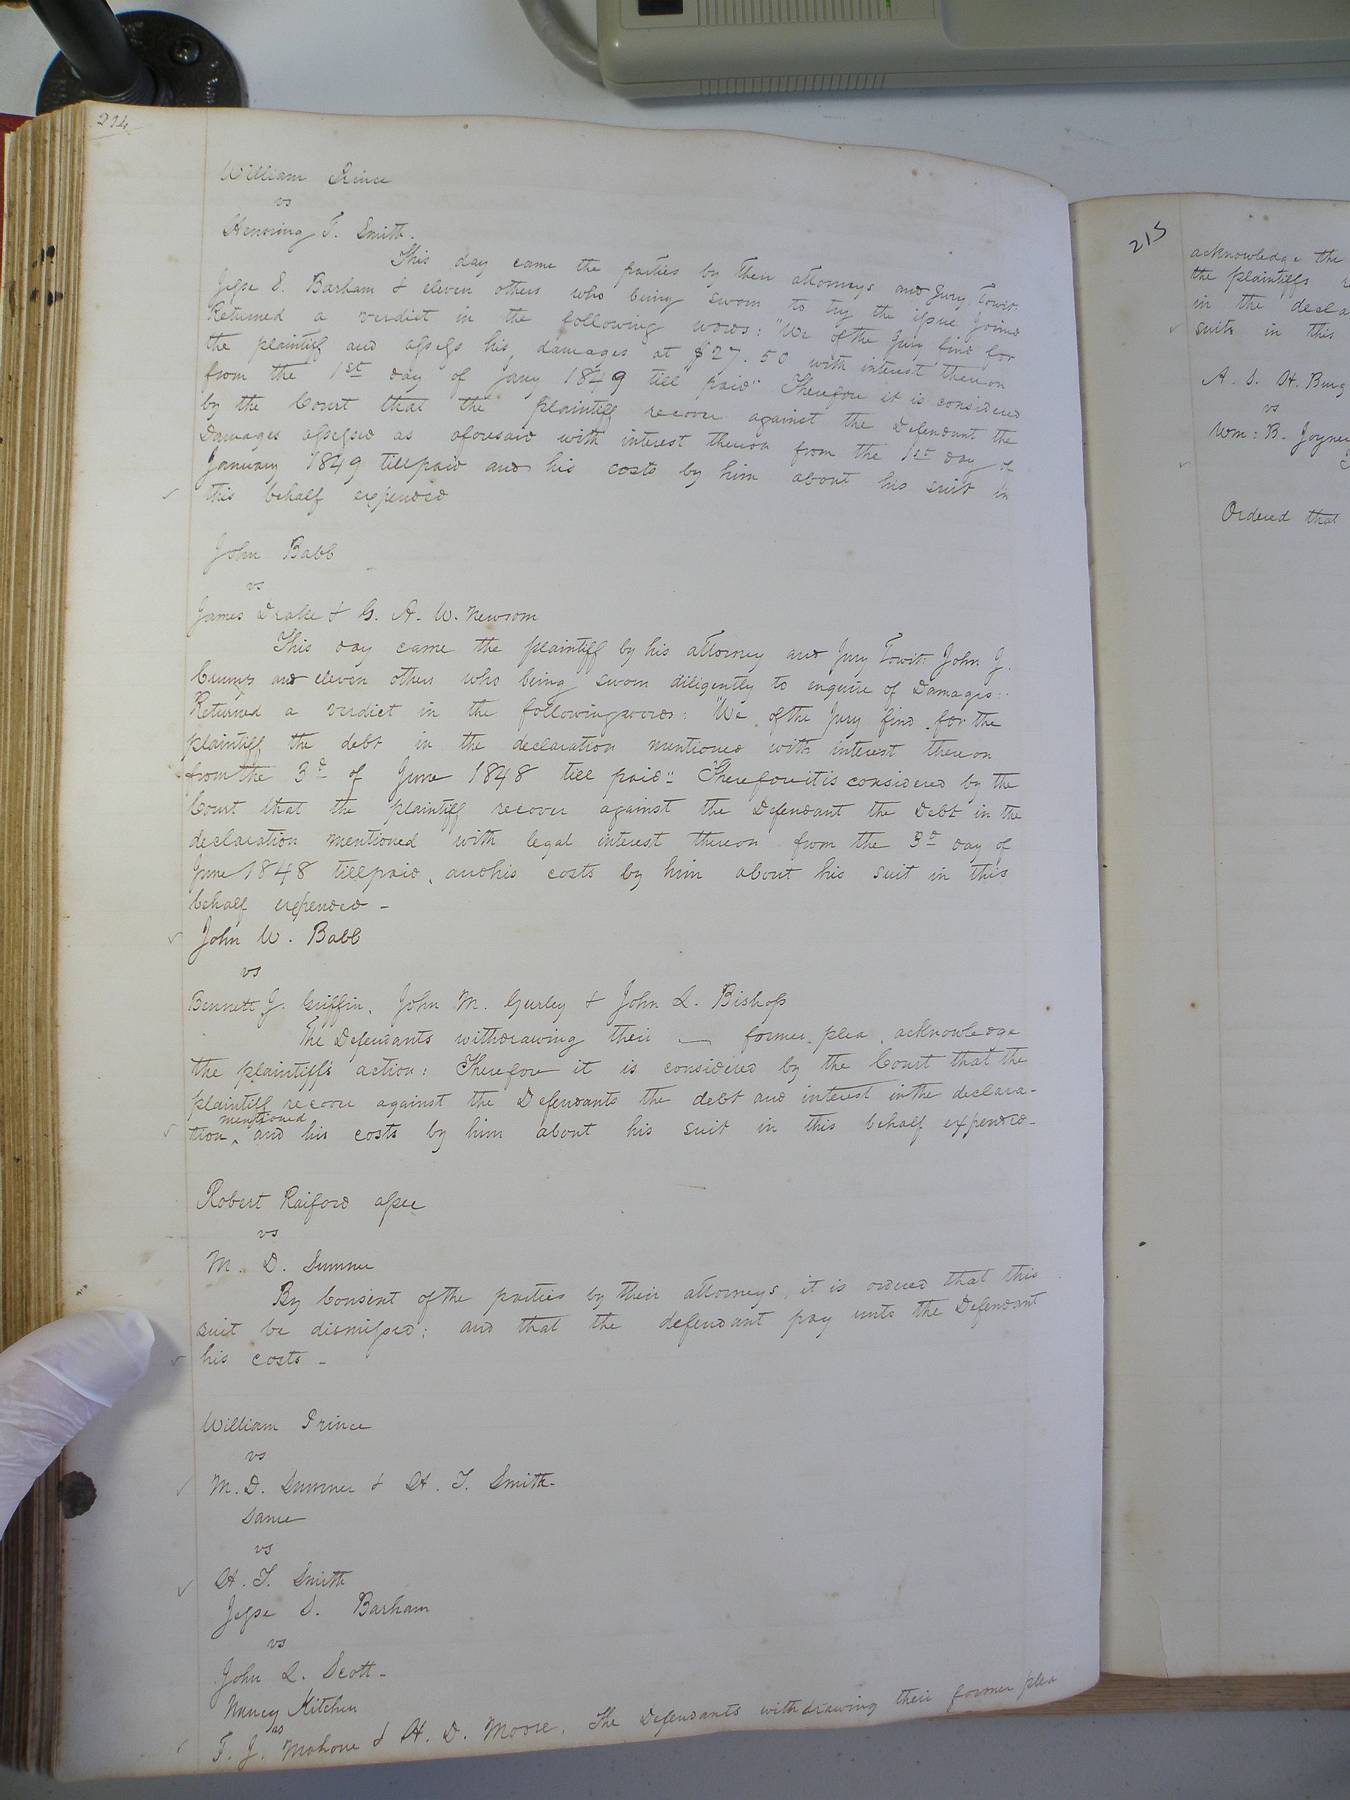 214
William Prince
vs
Henning T. Smith.
This day came the parties by their attorneys and Jury Towit:
Jesse S. Barham & eleven others who being sworn to try the issue joined
Returned a verdict in the following words: "We of the Jury find for
the plaintiff and assess his damages at $27.50 with interest thereon
from the 1st day of Jany 1849 till paid" Therefore it is considered
by the Court that the plaintiff recover against the Defendant the
Damages assessed as aforesaid with interest thereon from the 1st day of
January 1849 till paid and his costs by him about his suit in
this behalf expended
John Babb
vs
James Drake & G. A. W. Newsom
This day came the plaintiff by his attorney and Jury Towit: John J.
and eleven others who being sworn diligently to enquire of Damages:
Returned a verdict in the following words: "We of the Jury find for the
plaintiff the debt in the declaration mentioned with interest thereon
from the 3d of June 1848 till paid" Therefore it is considered by the
Court that the plaintiff recover against the Defendant the Debt in the
declaration mentioned with legal interest thereon from the 3d day of
June 1848 till paid, and his costs by him about his suit in this
behalf expended -
John W. Babb
vs
Bennett J. Griffin, John M. Gurley & John Q. Bishop
The Defendants withdrawing their — former plea, acknowledge
the plaintiff's action: Therefore it is considered by the Court that the
plaintiff recover against the Defendants the debt and interest in the declara-
mentioned
tion ^ and his costs by him about his suit in this behalf expended-
Robert Raiford assee
vs
M. D. Sumner
By Consent of the parties by their attorneys, it is ordered that this
suit be dismissed; and that the defendant pay unto the Defendant
his costs -
William Prince
vs
M. D. Sumner & H. T. Smith-
Same
vs
H. T. Smith
Jesse S. Barham
vs
John Q. Scott-
Nancy Kitchen
vs
T. J. Mahone & H. D. Moore. The Defendants withdrawing their former plea
215
acknowledge the
the plaintiffs
in the decla
suits in this
A. S. H. Burg
vs
Wm: B. Joyne
Ordered that